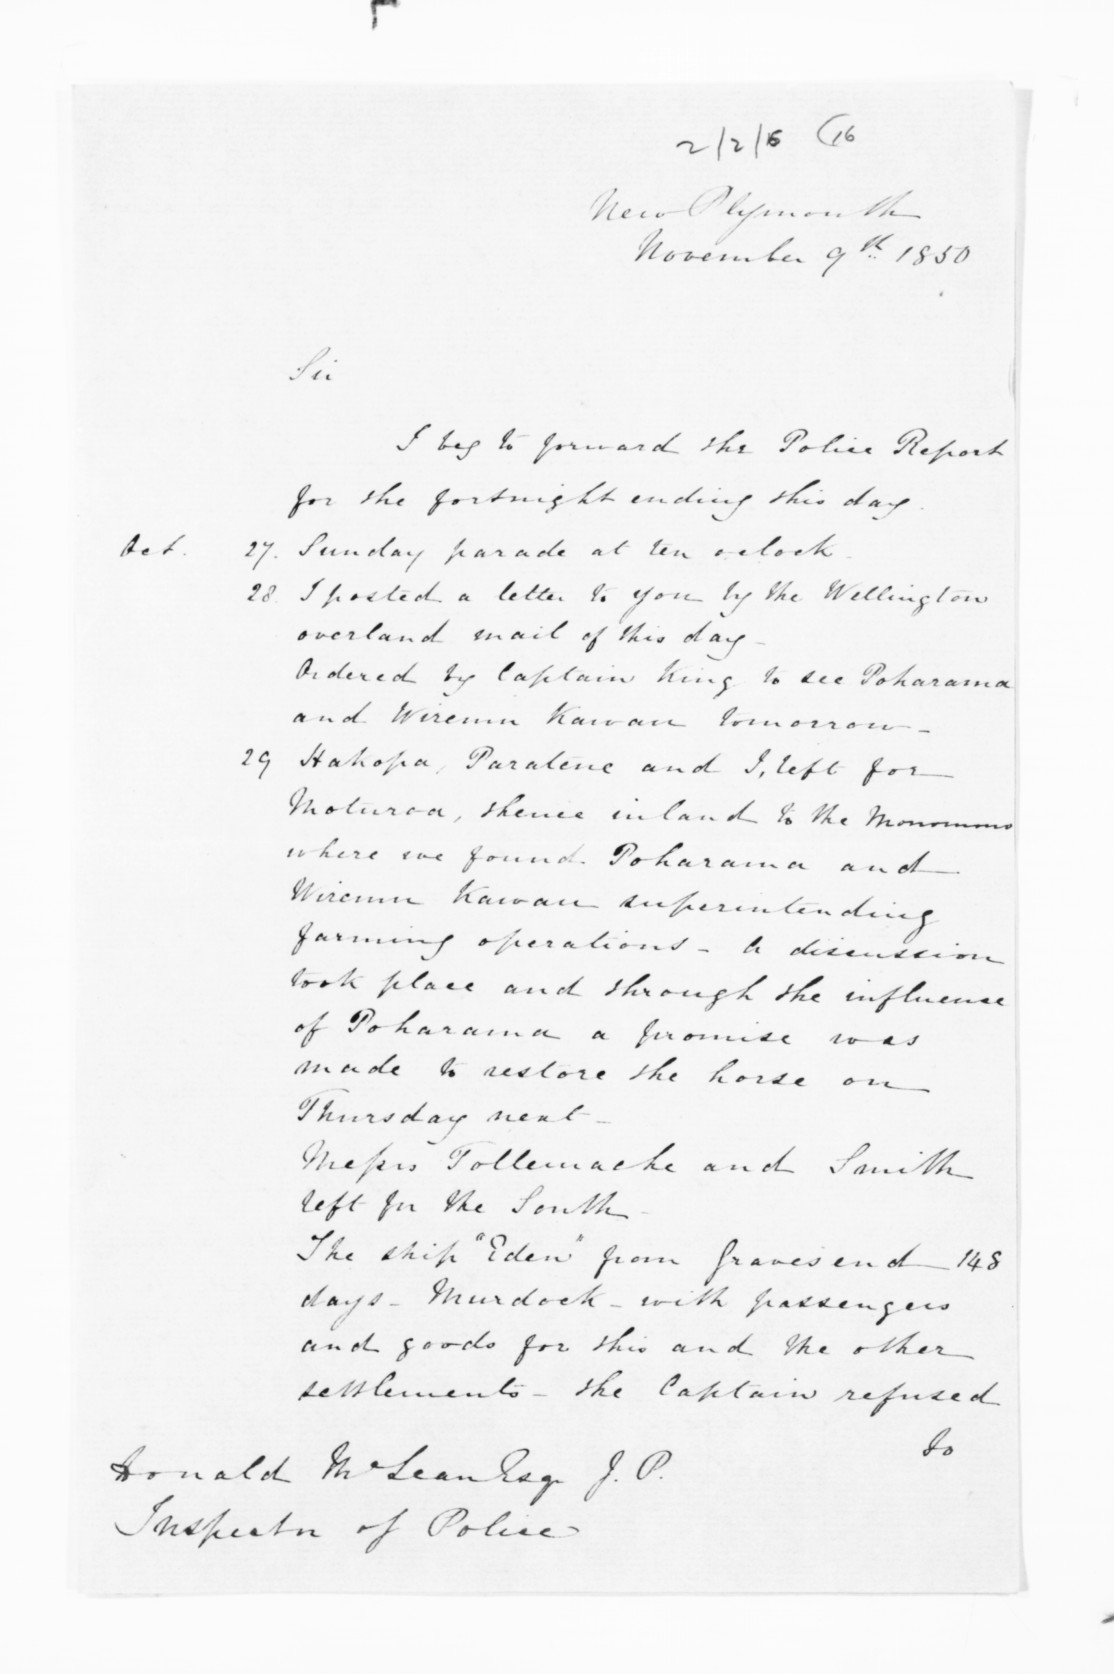 2/2/6 (16
New Plymouth
November 9th. 1850
Sir
I beg to forward the Police Report
for the fortnight ending this day.
Oct. 27. Sunday parade at ten oclock.
28. I posted a letter to you by the Wellington
overland mail of this day -
Ordered by Captain King to see Poharama
and Wiremu Kawau tomorrow -
29 Hakopa, Paratene and I, left for
Moturoa, thence inland to the
where we found Poharama and
Wiremu Kawau superintending
farming operations - A discussion
took place and through the influence
of Poharama a promise was
made to restore the horse on
Thursday next -
Messrs Tollemache and Smith
left for the South -
The ship "Eden" from Gravesend 148
days - Murdock - with passengers
and goods for this and the other
settlements - the Captain refused
to
Donald McLean Esq J. P.
Inspector of Police